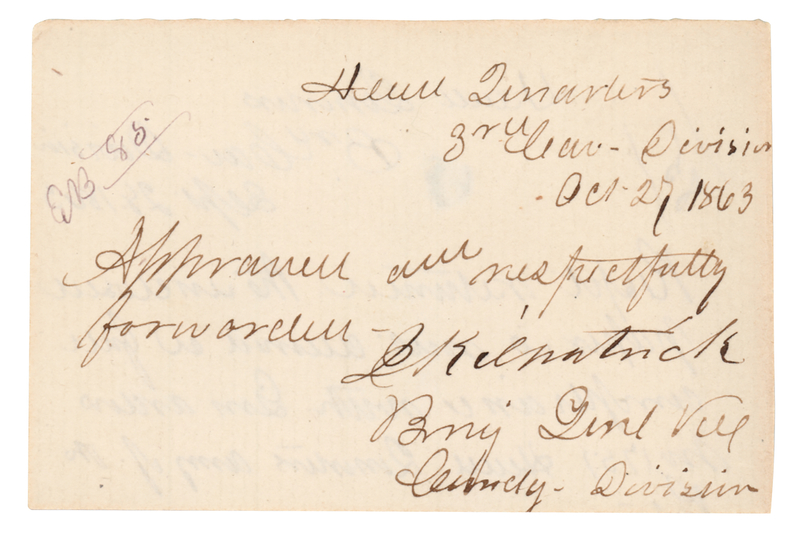 Head Quarters
3rd Cav- Division
Oct 27, 1863
EB 85.
Approved and respectfully
forwarded-
J Kilpatrick
Brig Genl Vol
Comdg- Division